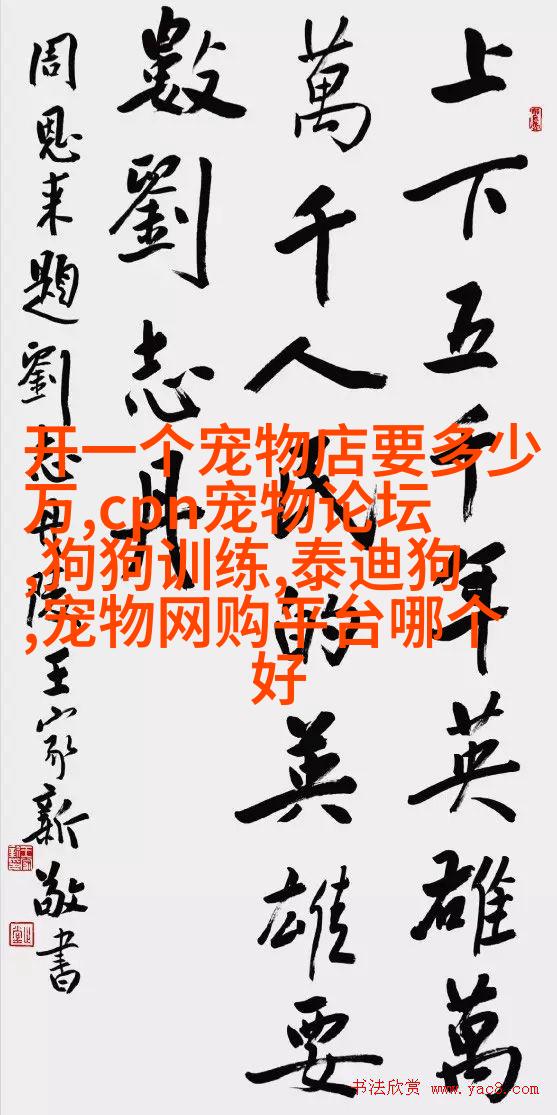 上下五千年英雄萬
萬千人民的英雄要
數劉志丹
周恩来題劉志丹陵王家新敬書
开一个宠物店要多少
万,cpn宠物论坛
,狗狗训练,泰迪狗
,宠物网购平台哪个
好
书法欣赏 www.yac8.com